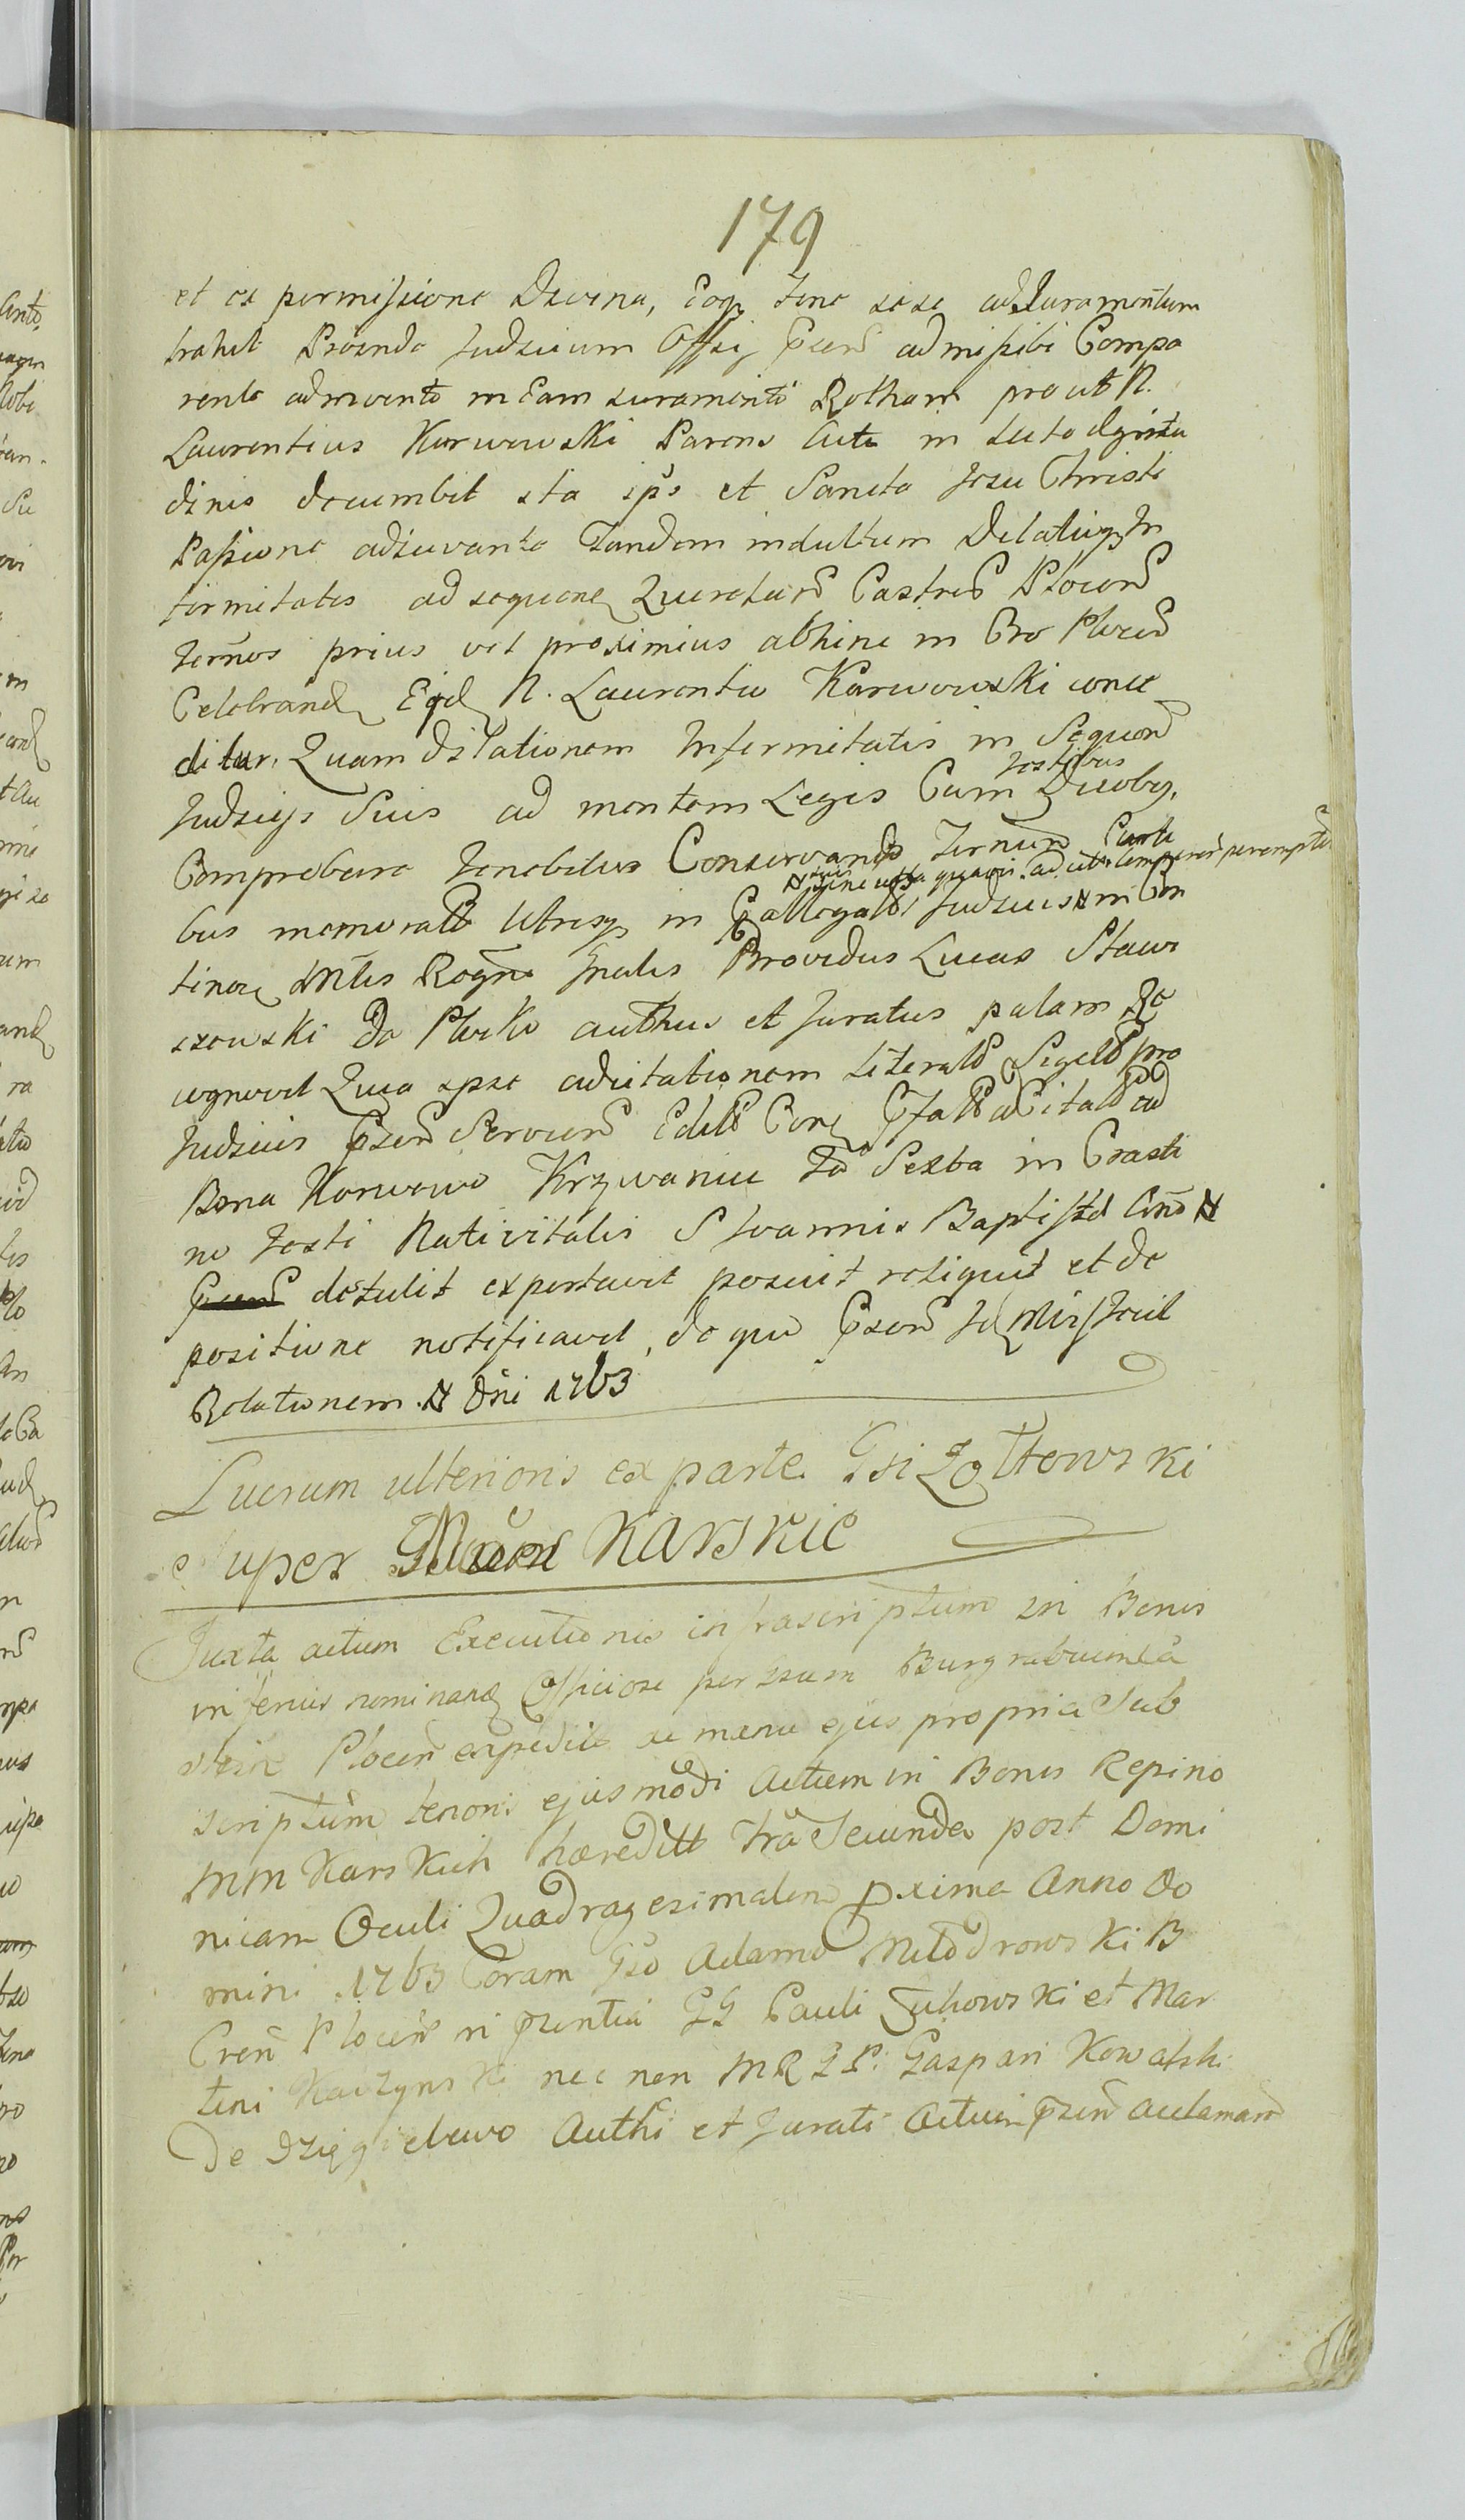 179
et ex permissione Divina, Eoq, Jene sese ad Juramentum
trahit Proinde Judicium Offij Psens admisibi Compa
rente admoente in Eam Juramenti Rotham prout N.
Laurentius Karwowski Parens in Lecto Egritu
dinis decumbit ita ips et Sancta Jesu Christi
Passione adiuvante Tandem indultum Delatioq In
firmitatis ad sequene Querelars Castres Plocens
Termos prius vel proximius abhinc in Cro Plocen
Celebrand Eid N. Laurentio Karwowski conce
ditur, Quam Dilationem Infirmitatis in Sequen
testibus
Judicijs Suis ad mentem Legis Cum Duobq,
Comprobare tenebitur Conservando Ternum Parti
sine ulla quavis ad
bus memorat Utrisq in Pallegatis Judicijs in Con
tinen Mtis Regne Gralis Providus Lucas Staw
szewski De Plocko authus et Juratus palam Re
cognovit Quia ipse adcitationem Literalis Sigillo pro
Judicio Psens Servien Edito Pallat ad Citato ad
Bona Karwowo Krzywanice Fa Sexta in Crasti
no Festi Nativitatis S Joannis Baptistæ Ann
detulit exportavit posuit reliquit et de
positione notificavit, de quo Psens Id Mirs Fecit
Relationem. Dni 1763
Lucrum ulterioris ex parte Gsi Zołtowski
super Karskie
Juxta actum Executionis infrascriptum in Bonis
inferius nominand Officiose per Gsum Burgrabium Ca
stren Plocen expedit ac manu ejus propria Sub
scriptum tenoris ejusmodi Actum in Bonis Repino
MM Karskich hæreditt Fria Secunda post Domi
nicam Oculi Quadragesimalem Pxima Anno Do
mini 1763 Coram Gso Adamo Młodrowski B
Cren Plocen in Psentia GG Pauli Zuhowski et Mar
tini Kaczynski nec non MRGP: Gaspari Kowalski
De Dzięgielewo Authi et Jurati Actum Psen